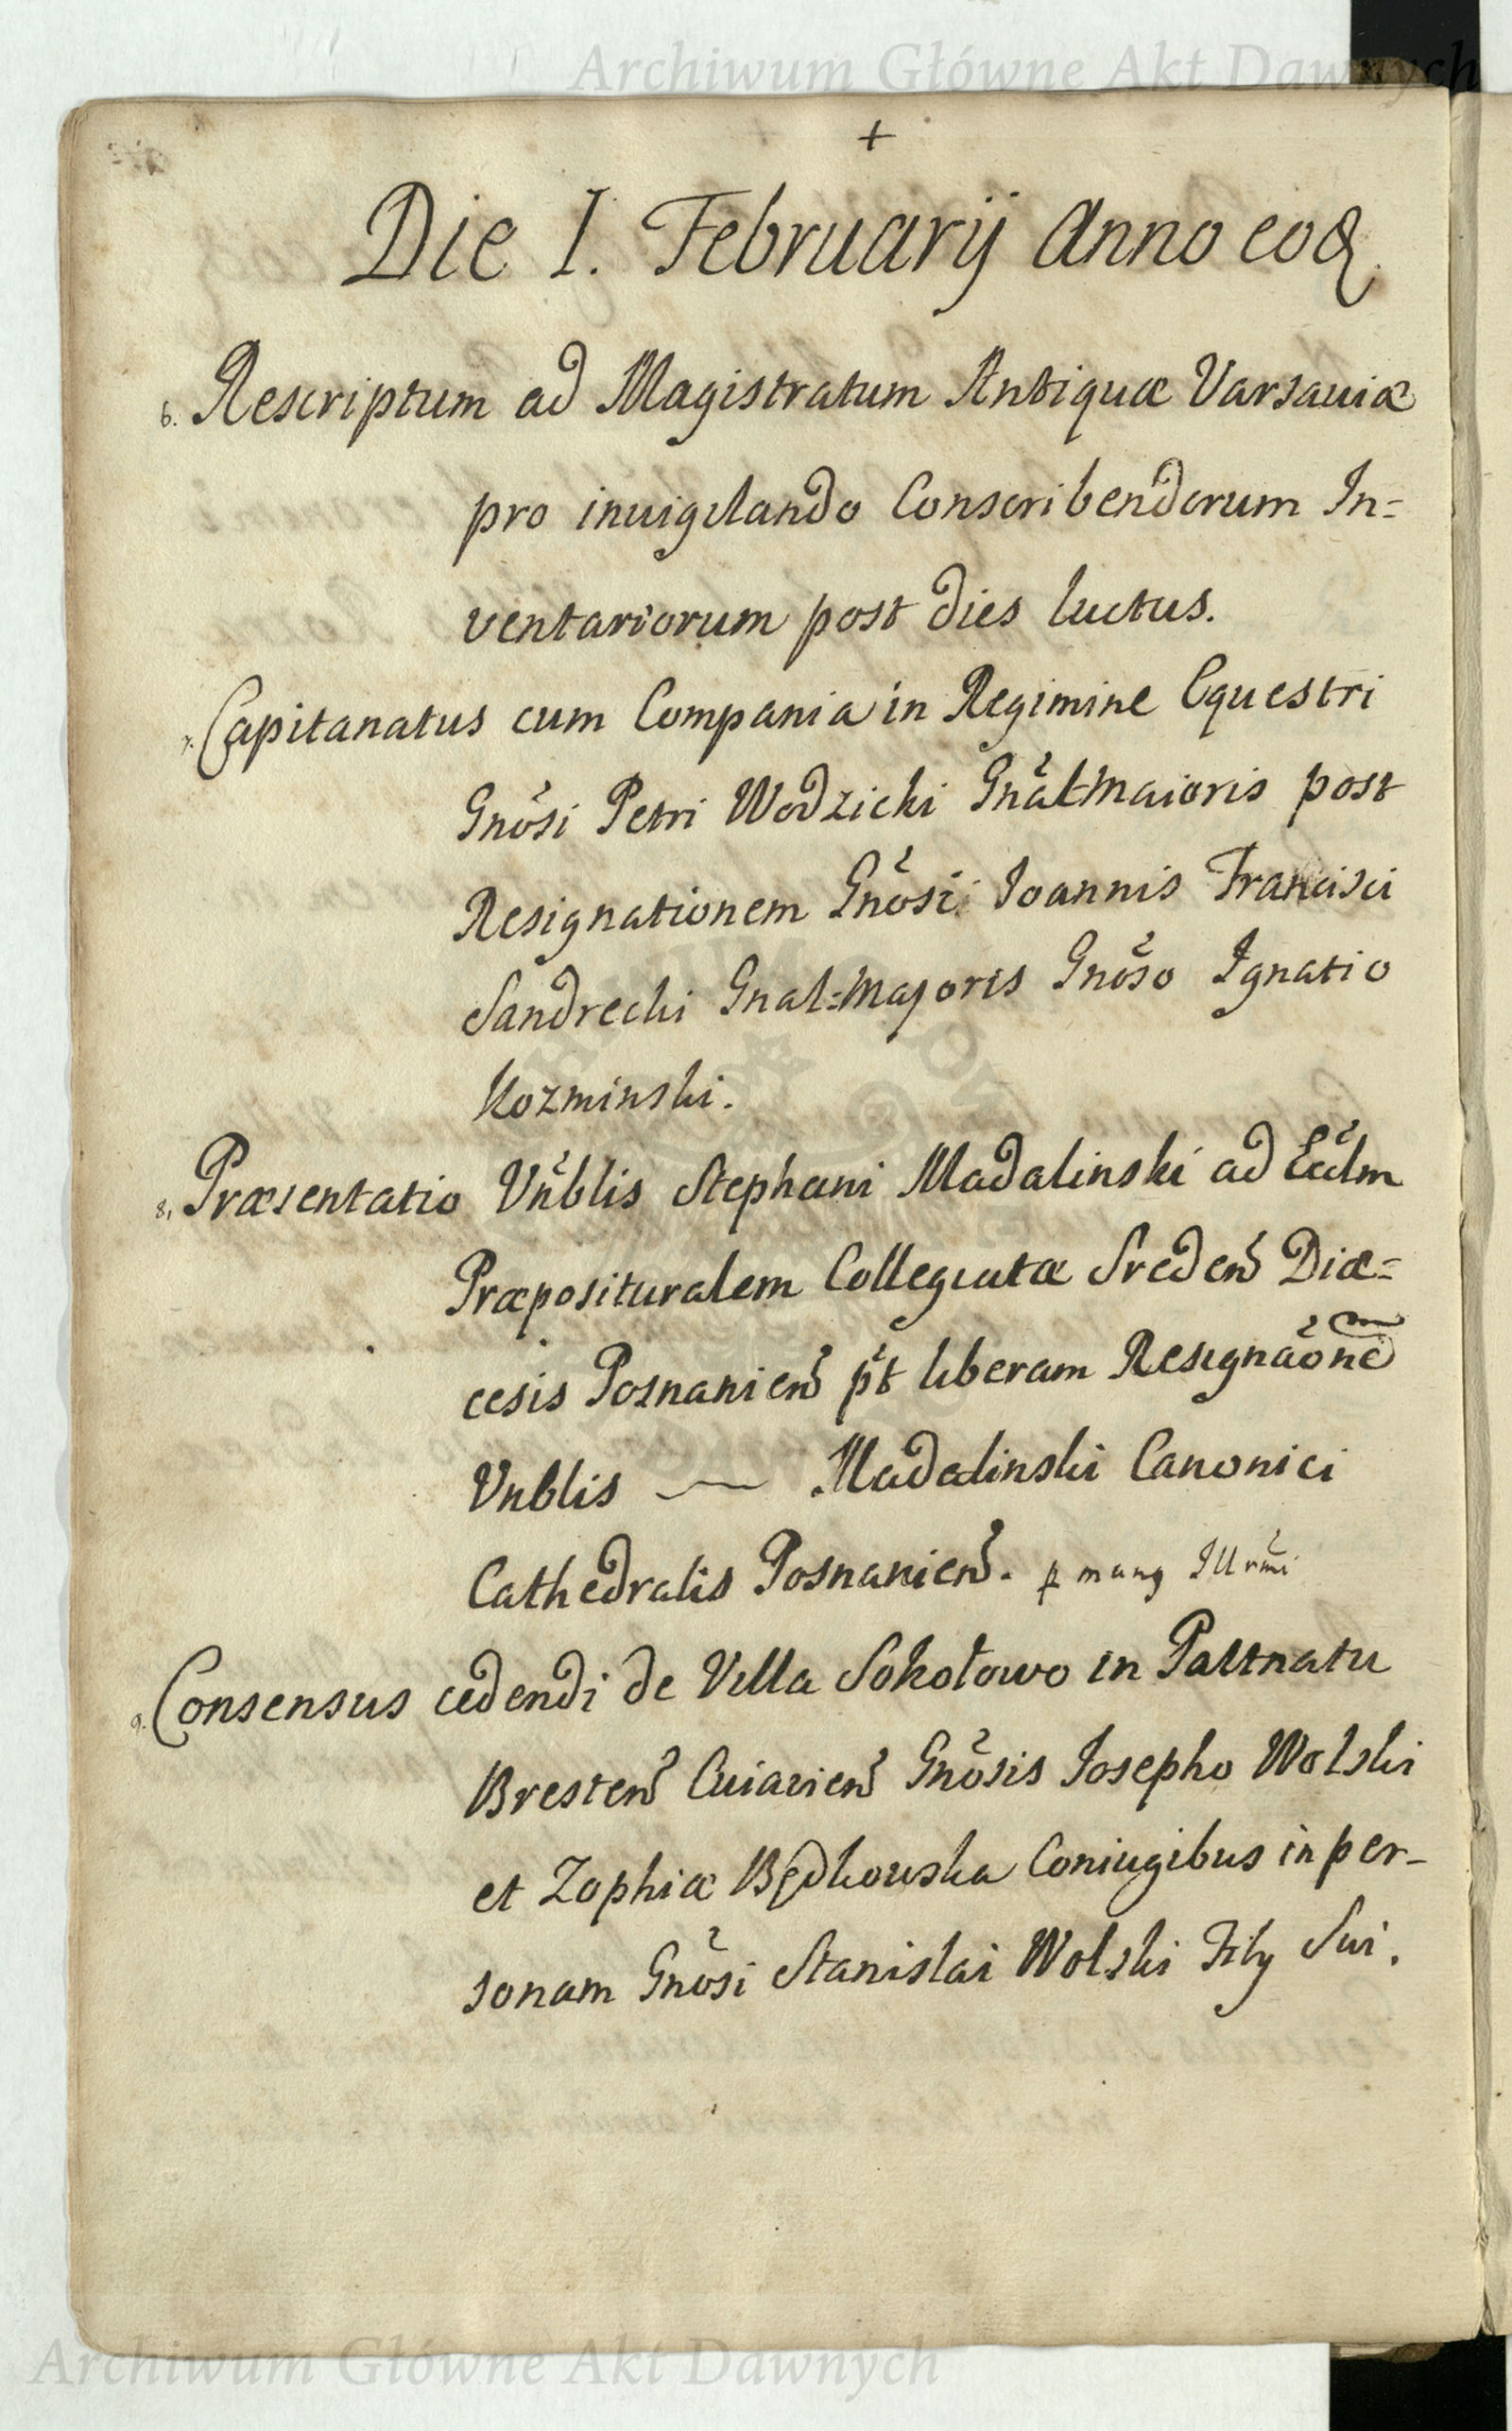 Archiwum Główne Akt Dawnych
+
Die I. Februarij Anno eoq
6. Rescriptum ad Magistratum Antiquæ Varsauiæ
pro inuigilando Conscribendorum In=
ventariorum post dies luctus.
7. Capitanatus cum Compania in Regimine Equestri
Gnõsi Petri Wodzicki Gnãl-Maioris post
Resignationem Gnõsi Ioannis Francisci
Sandrecki Gnal=Majoris Gnõso Ignatio
Kozminski.
8. Præsentatio Vñblis Stephani Madalinski ad Ecclm
Præposituralem Collegiatæ Sreden Diæ=
cesis Posnanien pt liberam Resignãone
Vnblis — Madalinski Canonici
Cathedralis Posnanien. p manq Illrmi
9. Consensus cedendi de Villa Sokołowo in Paltnatu
Bresten Cuiavien Gnõsis Iosepho Wolski
et Zophiæ Będkowska Coniugibus in per-
sonam Gnõsi Stanislai Wolski Filij Sui.
Archiwum Główne Akt Dawnych